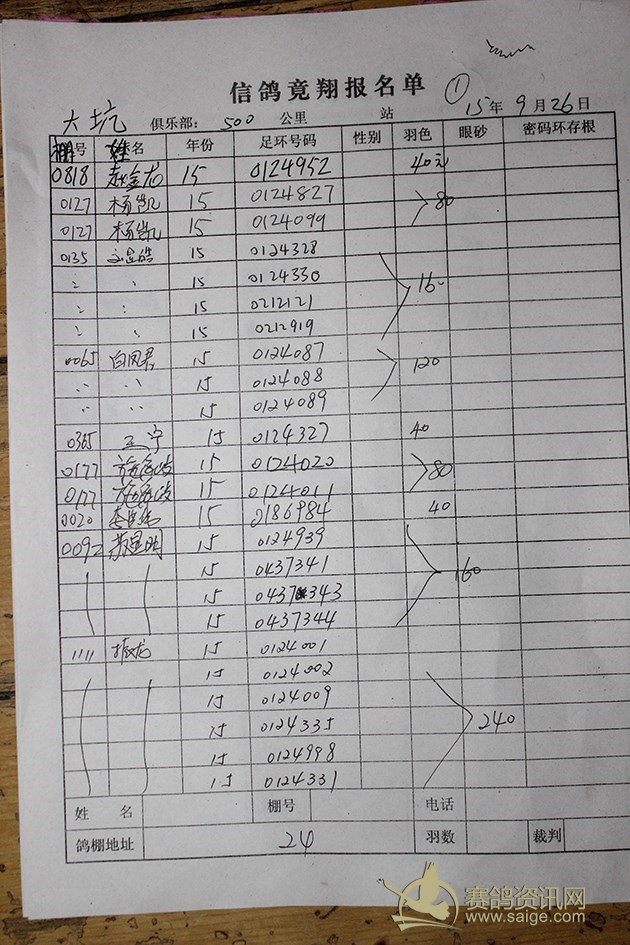 信鸽竞翔报名单 ①
大坑 俱乐部: 500 公里 站 15年 9月26日
棚号 姓名 年份 足环号码 性别 羽色 眼砂 密码环存根
0818 赵金龙 15 0124952 40元
0127 杨凯 15 0124827 80
0127 杨凯 15 0124099
0135 15 0124328
15 0124330 160
15 0212121
15 0212919
0065 白凤君 15 0124087
15 0124088 120
15 0124089
0365 王宁 15 0124327 40
0177 15 0124020 80
0177 15 0124011
0020 15 2186984 40
0092 15 0124939
15 0437341 160
15 0437343
15 0437344
1111 15 0124001
15 0124002
15 0124009
15 0124335 240
15 0124998
15 0124331
姓名 棚号 电话
鸽棚地址 24 羽数 裁判
赛鸽资讯网
www.saige.com